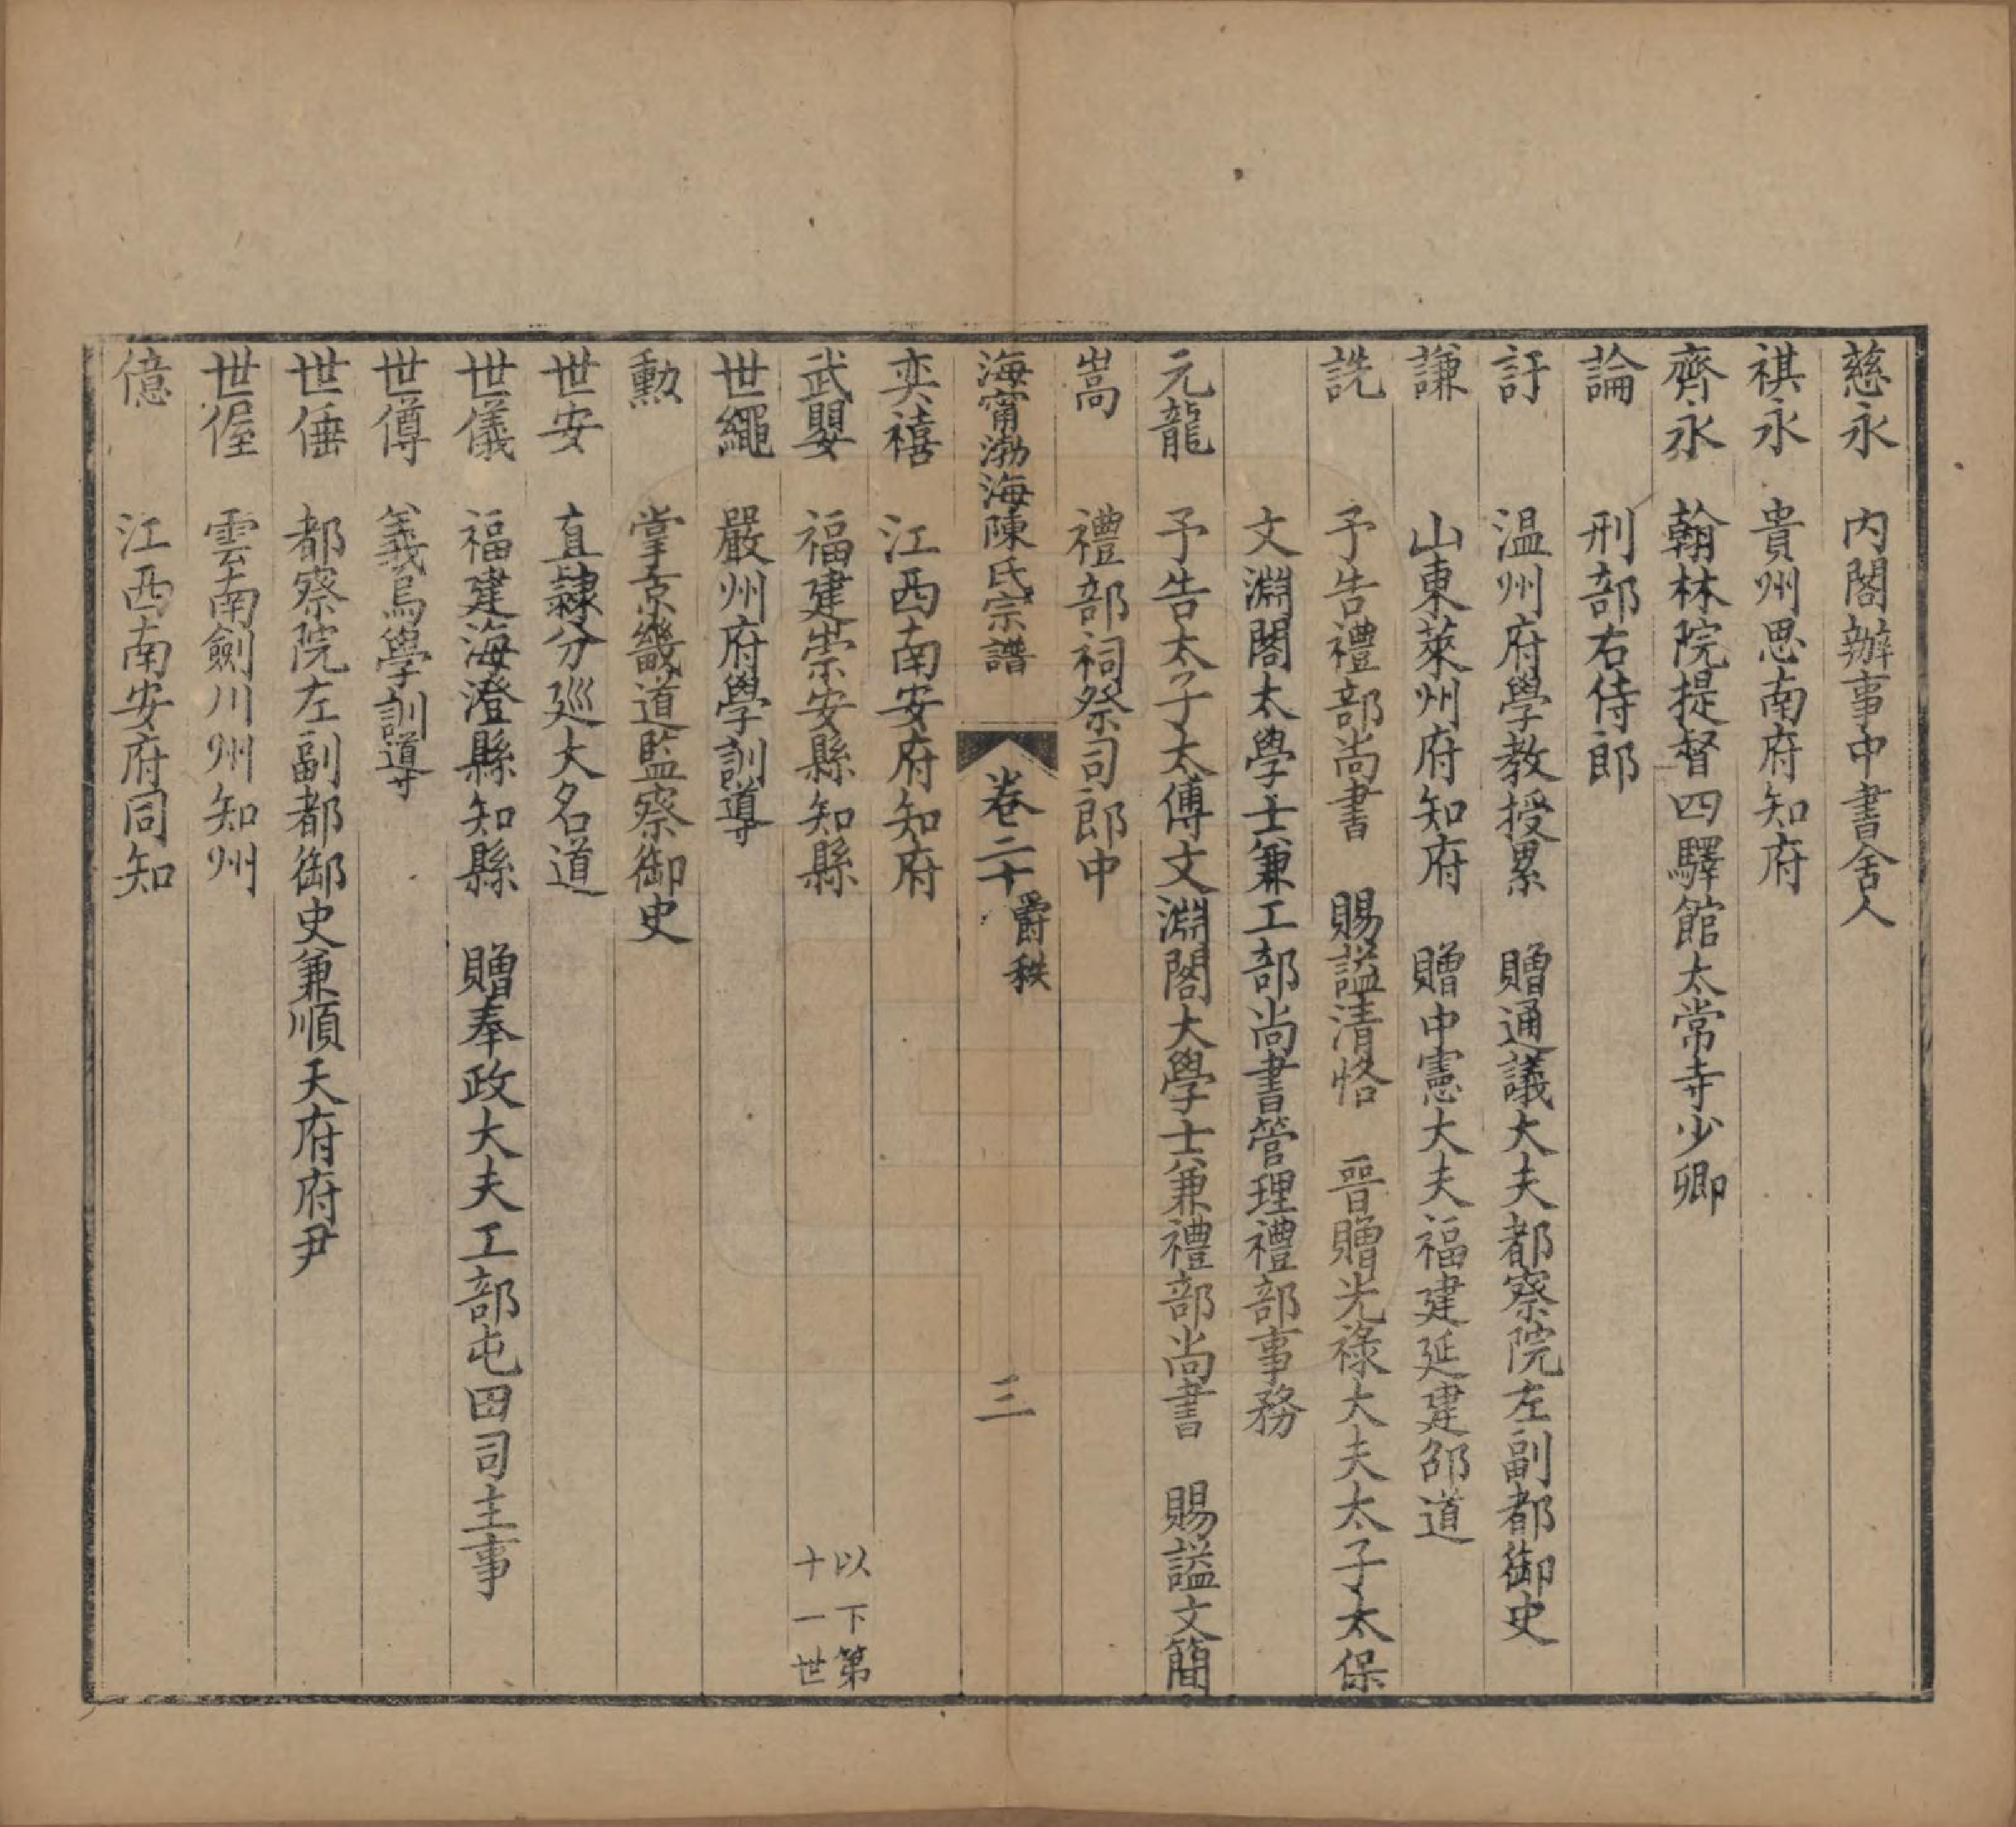 慈永 内閣辦事中書舍人
祺永 貴州思南府知府
齊永 翰林院提督四驛館太常寺少卿
論 刑部右侍郎
訏 温州府學教授累 贈通議大夫都察院左副都御史
謙 山東萊州府知府 贈中憲大夫福建延建邵道
詵 予告禮部尚書 賜謚清恪 晉贈光祿大夫太子太保
文淵閣太學士兼工部尚書管理禮部事務
元龍 予告太子太傅文淵閣大學士兼禮部尚書 賜謚文簡
嵩 禮部祠祭司郎中
海甯渤海陳氏宗譜 卷二十 爵秩 三
奕禧 江西南安府知府
武嬰 福建崇安縣知縣 以下第十一世
世繩 嚴州府學訓導
勳 掌京畿道監察御史
世安 直隸分廵大名道
世儀 福建海澄縣知縣 贈奉政大夫工部屯田司主事
世僔 義烏學訓導
世倕 都察院左副都御史兼順天府府尹
世偓 雲南劍川州知州
億 江西南安府同知